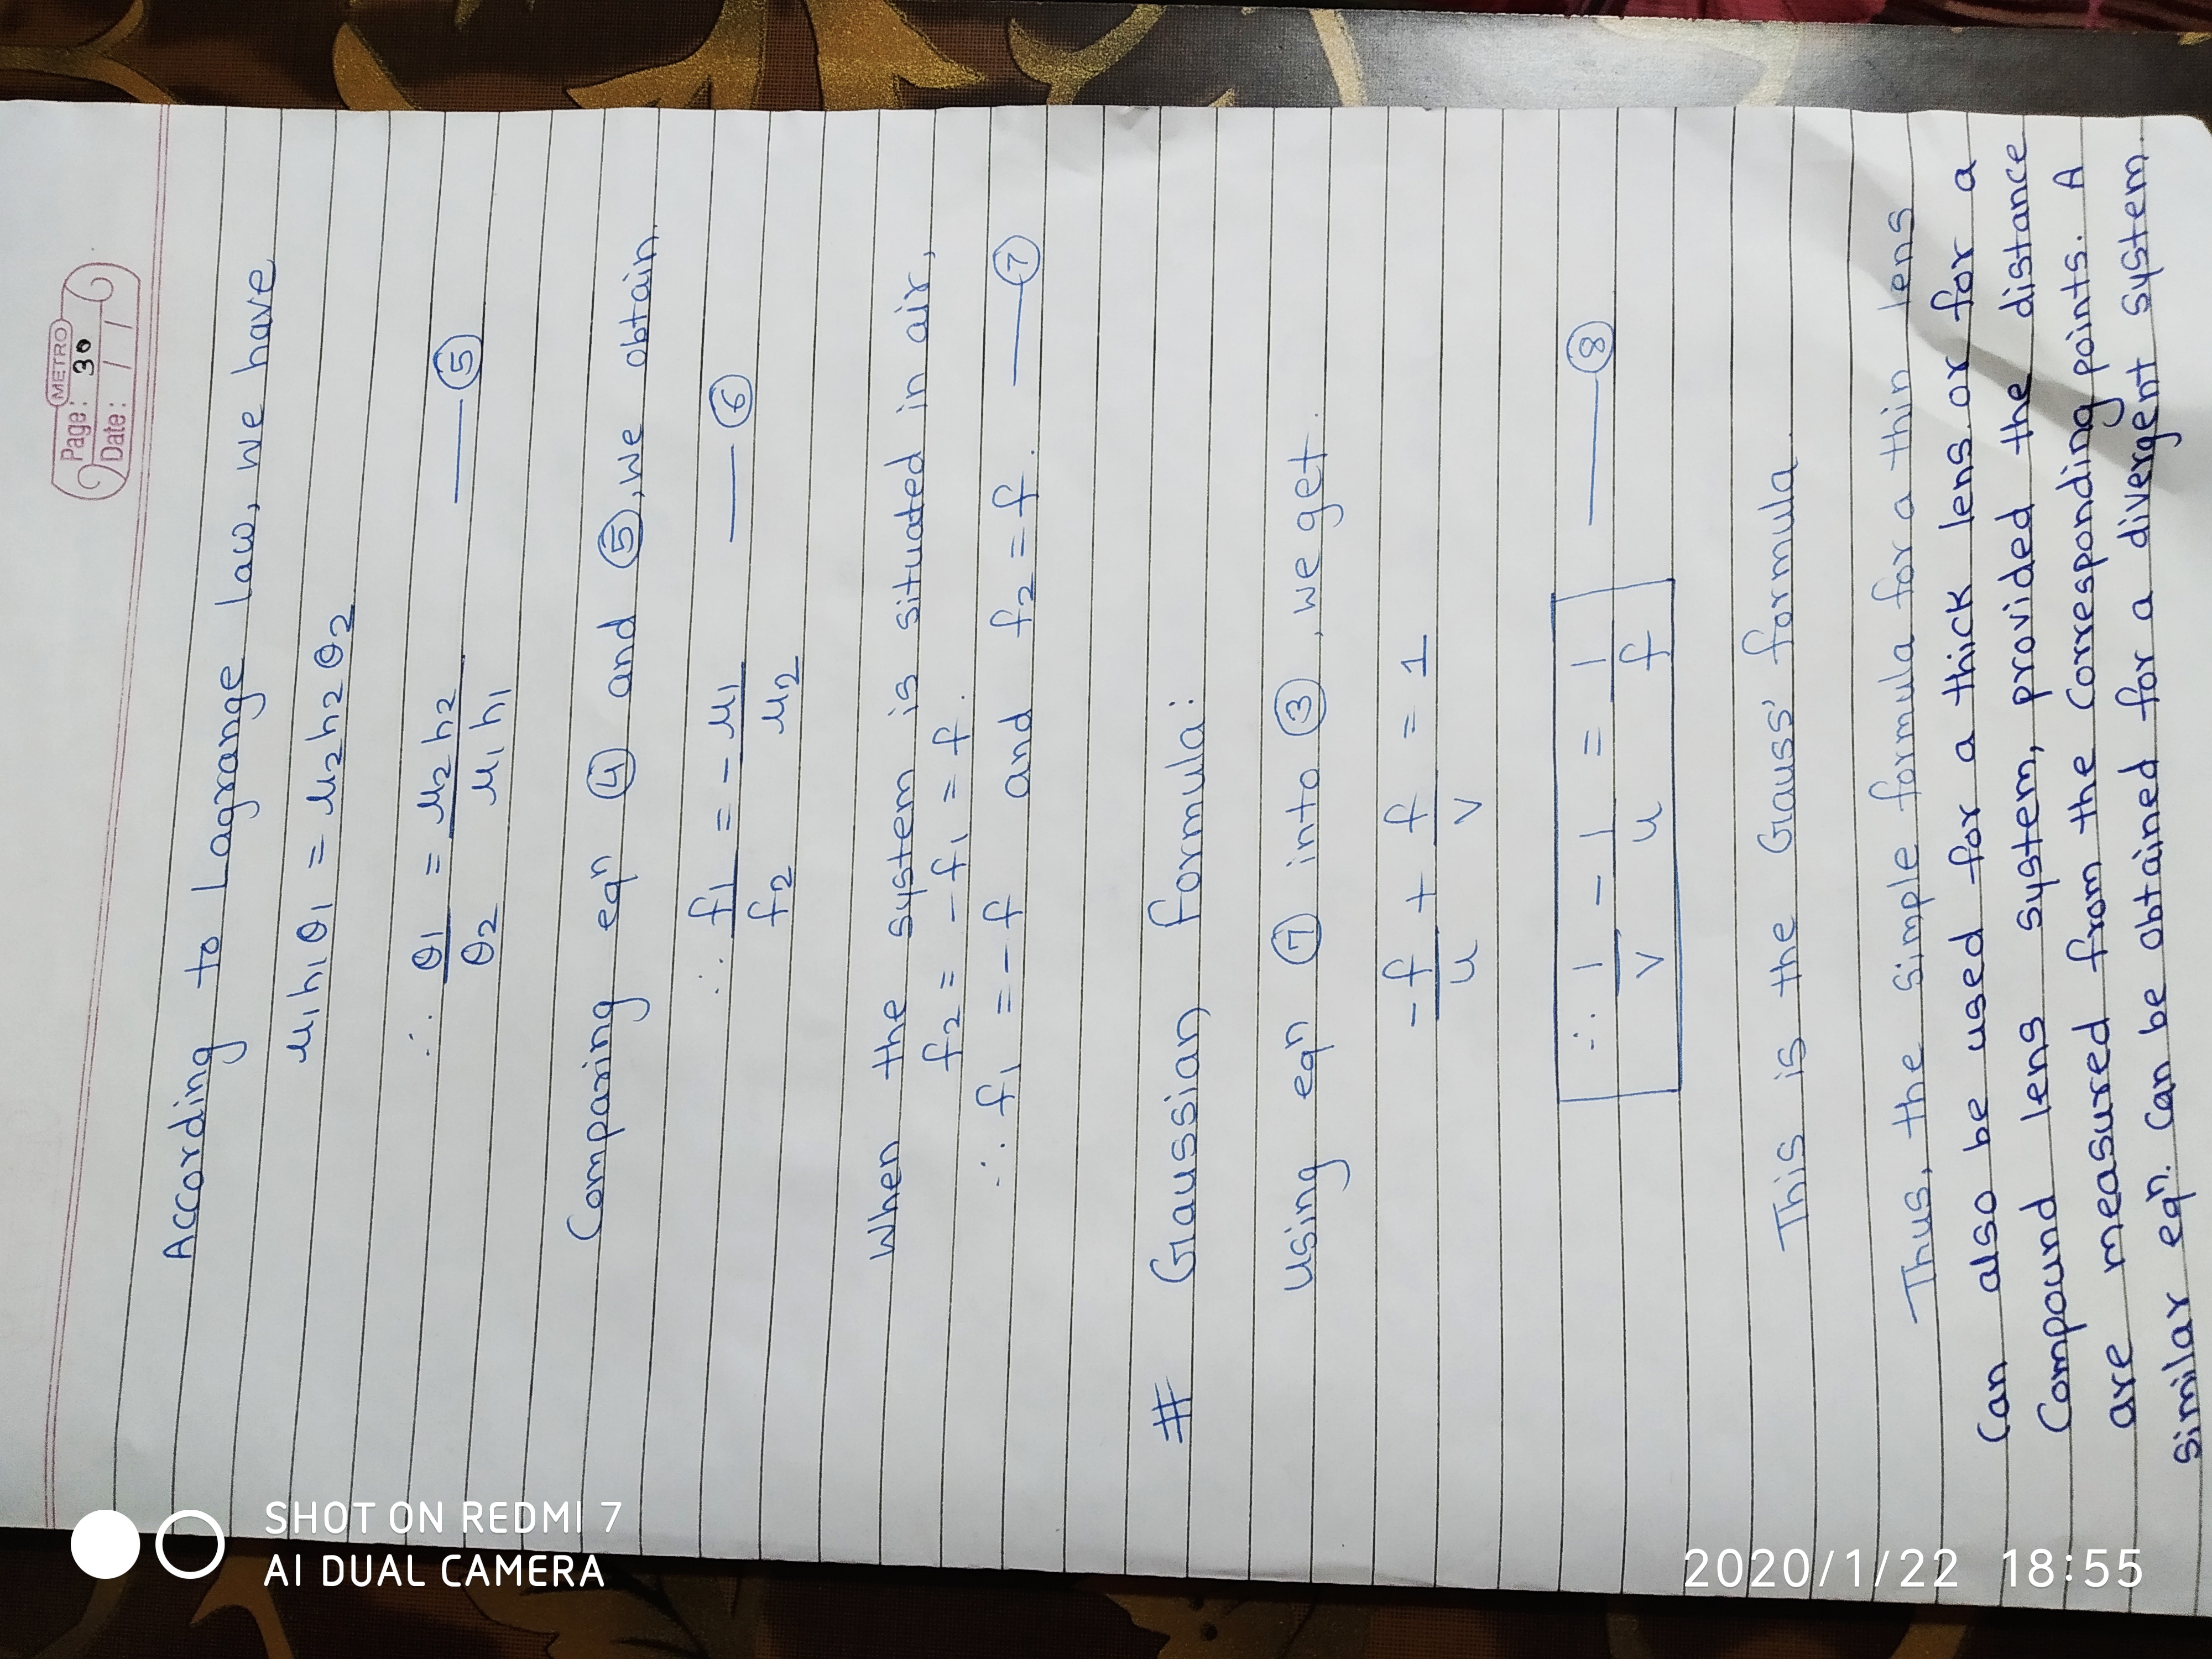 METRO
Page: 30
Date: / /
According to Lagrange law, we have
μ1 h1 θ1 = μ2 h2 θ2
∴ θ1/θ2 = μ2 h2/μ1 h1 —— ⑤
Comparing eqn ④ and ⑤, we obtain.
∴ f1/f2 = - μ1/μ2 —— ⑥
When the system is situated in air,
f2 = -f1 = f.
∴ f1 = -f and f2 = f. —— ⑦
# Gaussian formula:
Using eqn ⑦ into ③, we get.
-f/u + f/v = 1
∴ 1/v - 1/u = 1/f —— ⑧
This is the Gauss' formula.
Thus, the simple formula for a thin lens
Can also be used for a thick lens or for a
Compound lens system, provided the distance
are measured from the corresponding points. A
similar eqn. can be obtained for a divergent system.
SHOT ON REDMI 7
AI DUAL CAMERA
2020/1/22 18:55